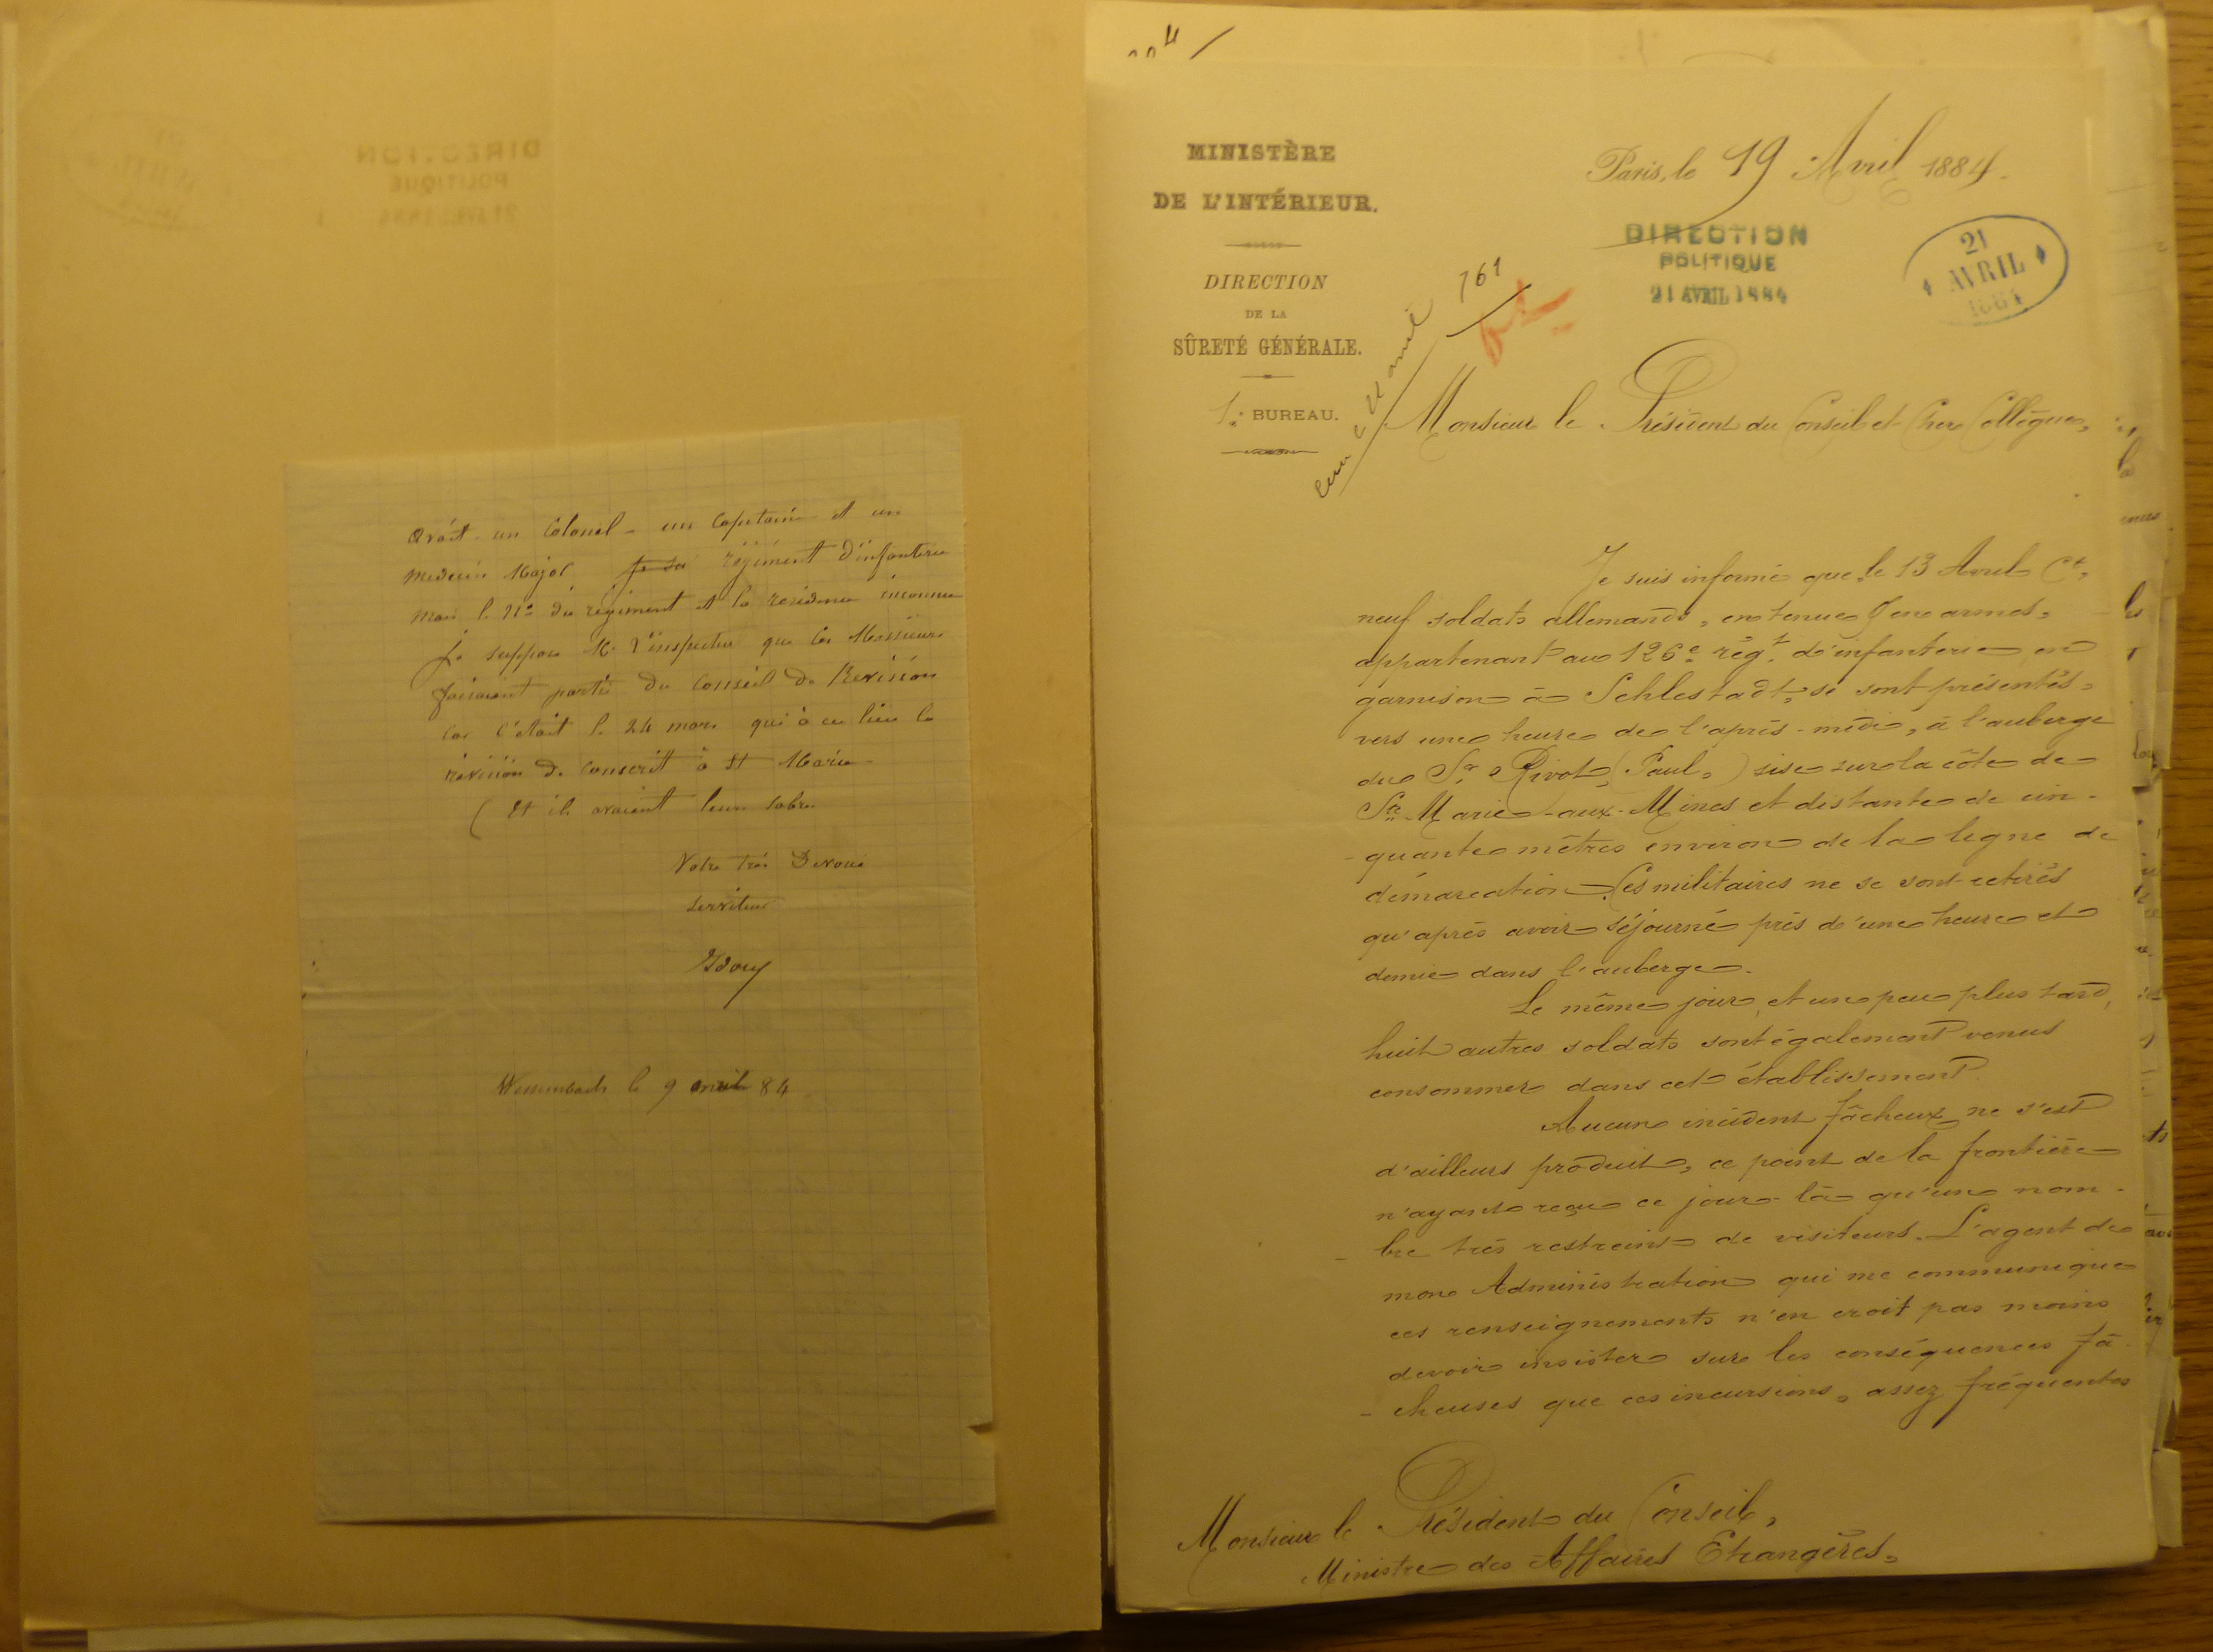 avait un Colonel - un Capitaine et un
Medecin Major régiment d'infanterie
mais le No du régiment et la residence inconnue
Je suppose M. l'inspecteur que ces Messieurs
faisaient partie du Conseil de Revision
car c'était le 24 mars qui à eu lieu la
révision de conscrit à St Marie
(Et ils avaient leurs sabres
Votre très Devoué
serviteur
Wissembach le 9 avril 84
MINISTÈRE
DE L'INTÉRIEUR.
DIRECTION
DE LA
SÛRETÉ GÉNÉRALE.
1er BUREAU.
Paris, le 19 Avril 1884.
DIRECTION
POLITIQUE
21 AVRIL 1884
21
AVRIL
1884
761
Monsieur le Président du Conseil et Cher Collègue,
Je suis informé que le 13 Avril Ct,
neuf soldats allemands, en tenue & en armes,
appartenant au 126e régt d'infanterie en
garnison à Schlestadt, se sont présentés,
vers une heure de l'après-midi, à l'auberge
du Sr Rivot (Paul,) sise sur la côte de
Ste Marie-aux-Mines et distante de cin-
-quante mètres environ de la ligne de
démarcation. Ces militaires ne se sont retirés
qu'après avoir séjourné près d'une heure et
demie dans l'auberge.
Le même jour, et un peu plus tard,
huit autres soldats sont également venus
consommer dans cet établissement.
Aucun incident fâcheux ne s'est
d'ailleurs produit, ce point de la frontière
n'ayant reçu ce jour-là qu'un nom-
-bre très restreint de visiteurs. L'agent de
mon Administration qui me communique
ces renseignements n'en croit pas moins
devoir insister sur les conséquences fâ-
-cheuses que ces incursions, assez fréquentes
Monsieur le Président du Conseil,
Ministre des Affaires Etrangères,